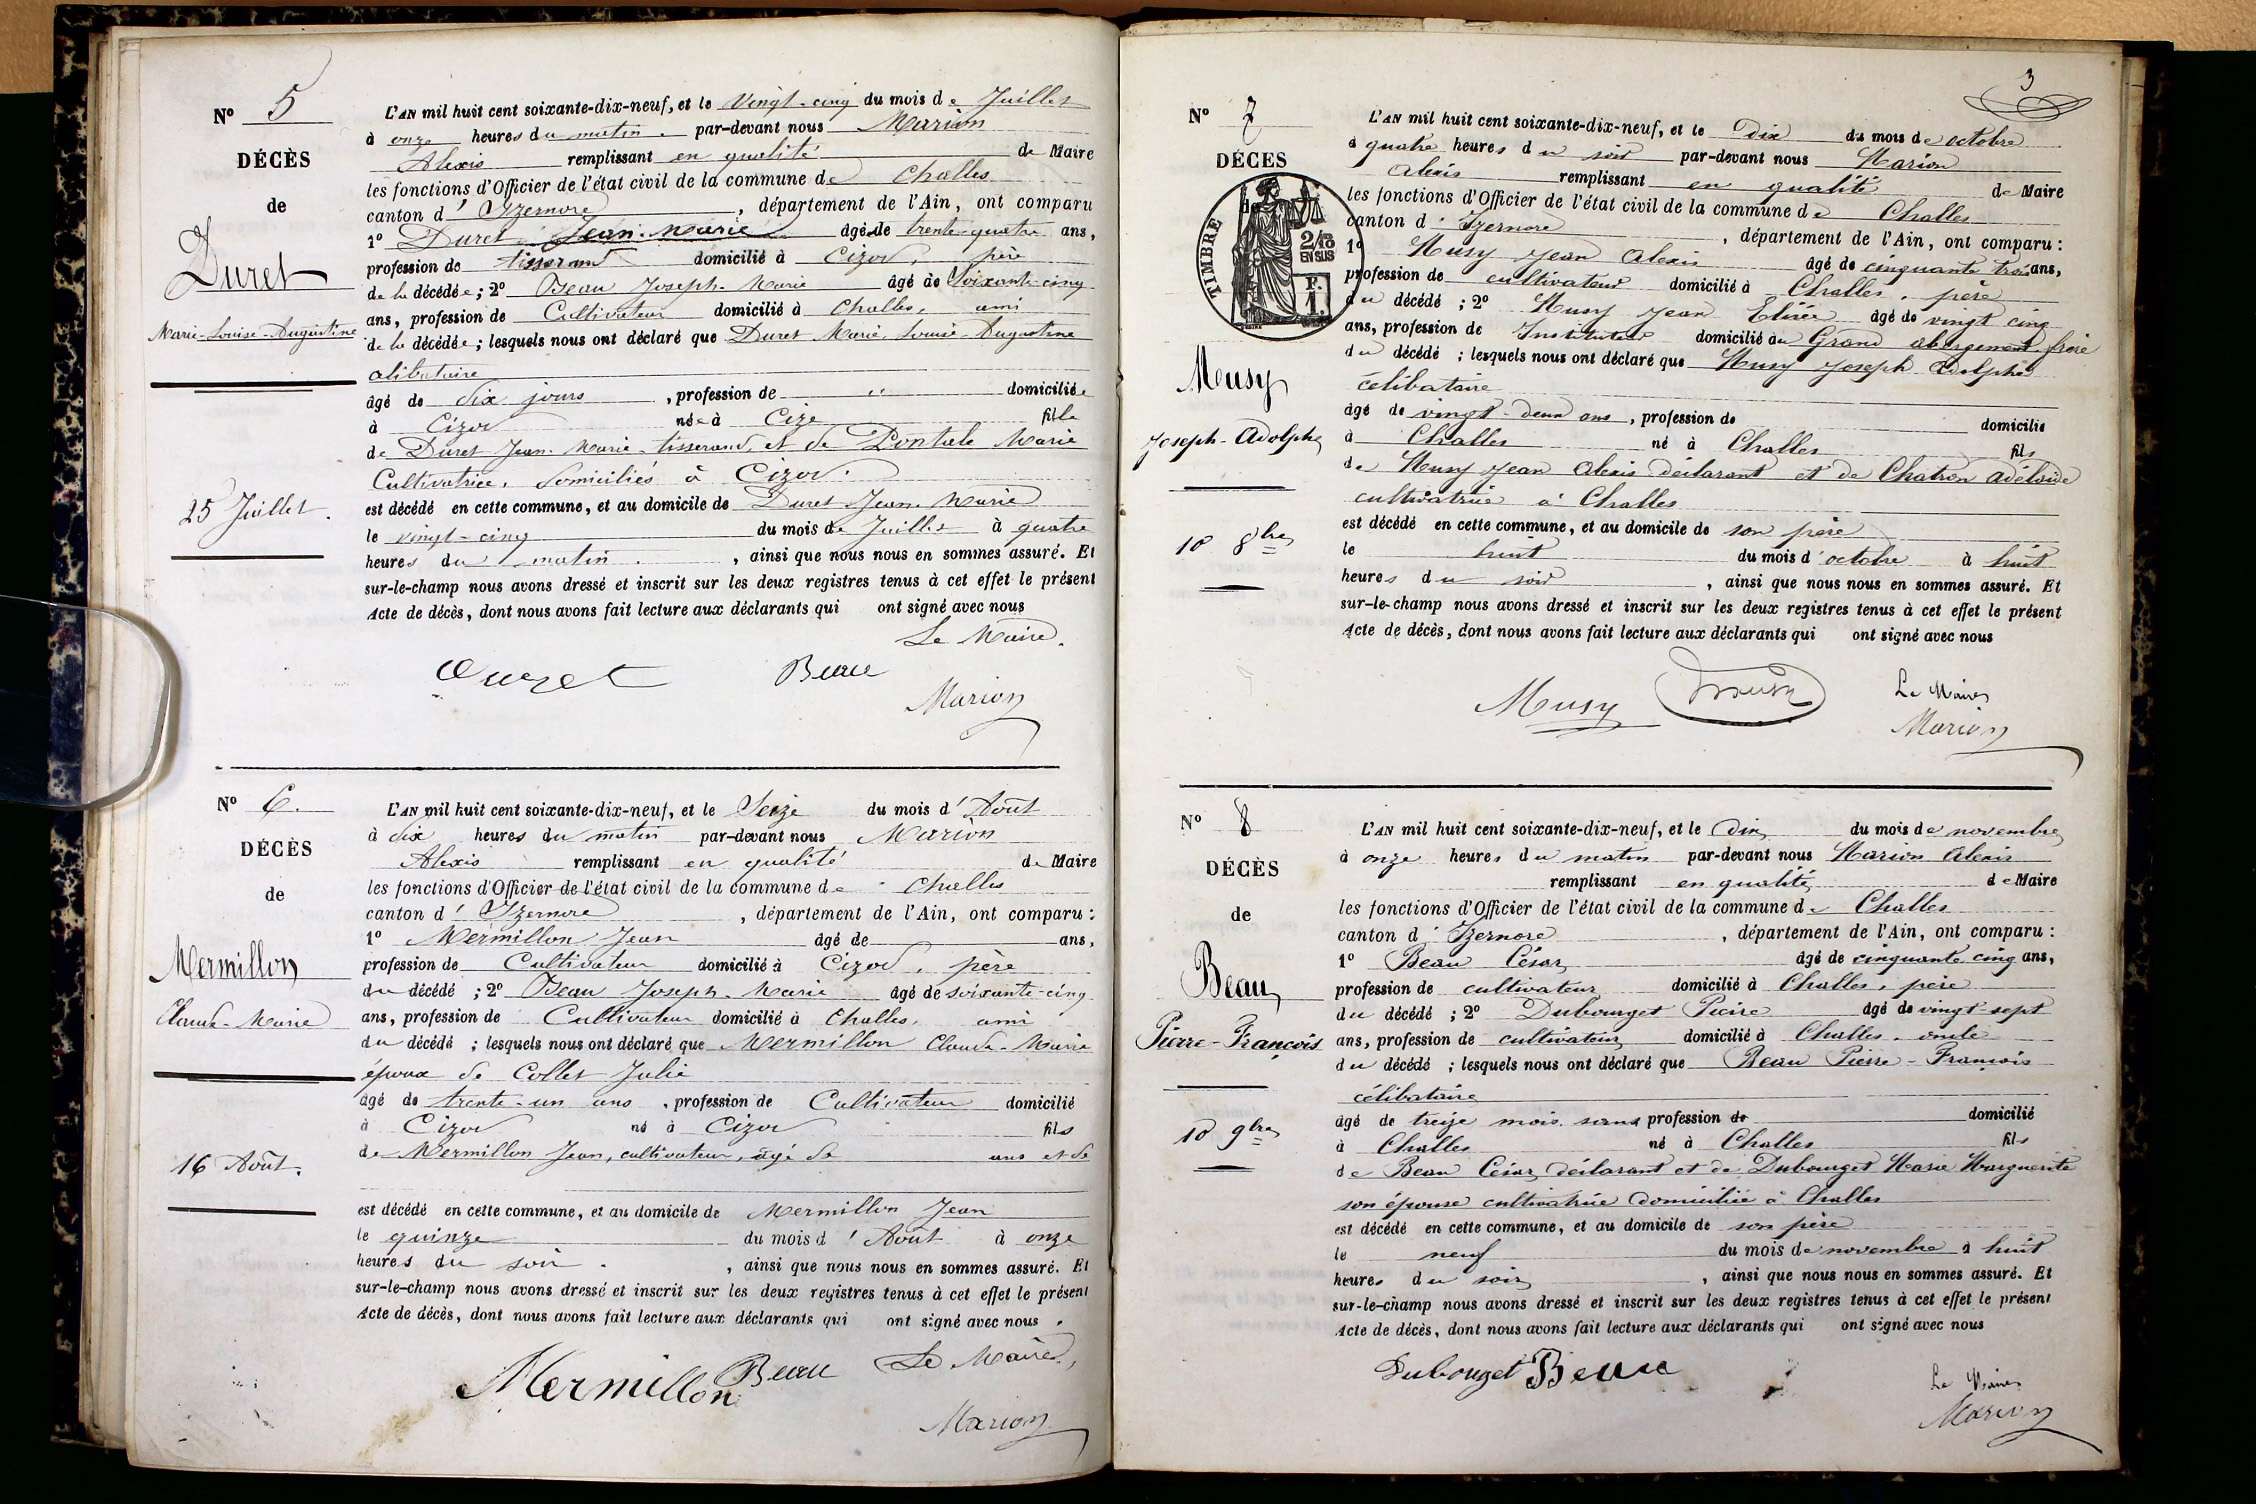 N° 5
DÉCÈS
de
Duret
Marie-Louise-Augustine
25 Juillet.
L'AN mil huit cent soixante-dix-neuf, et le Vingt-cinq du mois de Juillet
à onze heures du matin. par-devant nous Marion
Alexis remplissant en qualité de Maire
les fonctions d'Officier de l'état civil de la commune de Challes
canton d'Izernore, département de l'Ain, ont comparu
1° Duret Jean-Marie âgé de trente-quatre ans,
profession de tisserand domicilié à Cizod, père
de la décédée; 2° Beau Joseph-Marie âgé de Soixante-cinq
ans, profession de Cultivateur domicilié à Challes, ami
de la décédée; lesquels nous ont déclaré que Duret Marie-Louise-Augustine
célibataire
âgé de dix jours, profession de " domiciliée
à Cizod née à Cize fille
de Duret Jean-Marie tisserand, et de Marie
Cultivatrice, domiciliés à Cizod.
est décédé en cette commune, et au domicile de Duret Jean-Marie
le vingt-cinq du mois de Juillet à quatre
heures du matin., ainsi que nous nous en sommes assuré. Et
sur-le-champ nous avons dressé et inscrit sur les deux registres tenus à cet effet le présent
Acte de décès, dont nous avons fait lecture aux déclarants qui ont signé avec nous
Le Maire.
Duret Beau
Marion
N° 6.
DÉCÈS
de
Mermillon
Claude-Marie
16 Août.
L'AN mil huit cent soixante-dix-neuf, et le Seize du mois d'Août
à dix heures du matin par-devant nous Marion
Alexis remplissant en qualité de Maire
les fonctions d'Officier de l'état civil de la commune de Challes
canton d'Izernore, département de l'Ain, ont comparu:
1° Mermillon Jean âgé de ans,
profession de Cultivateur domicilié à Cizod, père
du décédé; 2° Beau Joseph-Marie âgé de soixante-cinq
ans, profession de Cultivateur domicilié à Challes, ami
du décédé; lesquels nous ont déclaré que Mermillon Claude-Marie
époux de Collet Julie
âgé de trente-un ans, profession de Cultivateur domicilié
à Cizod né à Cizod fils
de Mermillon Jean, cultivateur, âgé de ans et de
est décédé en cette commune, et au domicile de Mermillon Jean
le quinze du mois d'Août à onze
heures du soir., ainsi que nous nous en sommes assuré. Et
sur-le-champ nous avons dressé et inscrit sur les deux registres tenus à cet effet le présent
Acte de décès, dont nous avons fait lecture aux déclarants qui ont signé avec nous.
Mermillon Beau Le Maire,
Marion
3
N° 7
DÉCÈS
TIMBRE
2/10
EN SUS
F.
1.
Musy
Joseph-Adolphe
10 8bre
L'AN mil huit cent soixante-dix-neuf, et le Dix du mois de octobre
à quatre heures du soir par-devant nous Marion
Alexis remplissant en qualité de Maire
les fonctions d'Officier de l'état civil de la commune de Challes
canton d'Izernore, département de l'Ain, ont comparu:
1° Musy Jean Alexis âgé de cinquante trois ans,
profession de cultivateur domicilié à Challes, père
du décédé; 2° Musy Jean Elisée âgé de vingt cinq
ans, profession de Instituteur domicilié au Grand abergement, frère
du décédé; lesquels nous ont déclaré que Musy Joseph Adolphe
célibataire
âgé de vingt-deux ans, profession de domicilié
à Challes né à Challes fils
de Musy Jean Alexis déclarant et de Chatron Adélaïde
cultivatrice à Challes
est décédé en cette commune, et au domicile de son père
le huit du mois d'octobre à huit
heures du soir, ainsi que nous nous en sommes assuré. Et
sur-le-champ nous avons dressé et inscrit sur les deux registres tenus à cet effet le présent
Acte de décès, dont nous avons fait lecture aux déclarants qui ont signé avec nous
Musy Musy Le Maire
Marion
N° 8
DÉCÈS
de
Beau
Pierre-François
10 9bre
L'AN mil huit cent soixante-dix-neuf, et le Dix du mois de novembre
à onze heures du matin par-devant nous Marion Alexis
remplissant en qualité de Maire
les fonctions d'Officier de l'état civil de la commune de Challes
canton d'Izernore, département de l'Ain, ont comparu:
1° Beau César âgé de cinquante cinq ans,
profession de cultivateur domicilié à Challes, père
du décédé; 2° Dubourget Pierre âgé de vingt-sept
ans, profession de cultivateur domicilié à Challes, oncle
du décédé; lesquels nous ont déclaré que Beau Pierre-François
célibataire
âgé de treize mois sans profession de domicilié
à Challes né à Challes fils
de Beau César déclarant et de Dubourget Marie Marguerite
son épouse cultivatrice domiciliée à Challes
est décédé en cette commune, et au domicile de son père
le neuf du mois de novembre à huit
heures du soir, ainsi que nous nous en sommes assuré. Et
sur-le-champ nous avons dressé et inscrit sur les deux registres tenus à cet effet le présent
Acte de décès, dont nous avons fait lecture aux déclarants qui ont signé avec nous
Dubouget Beau
Le Maire
Marion